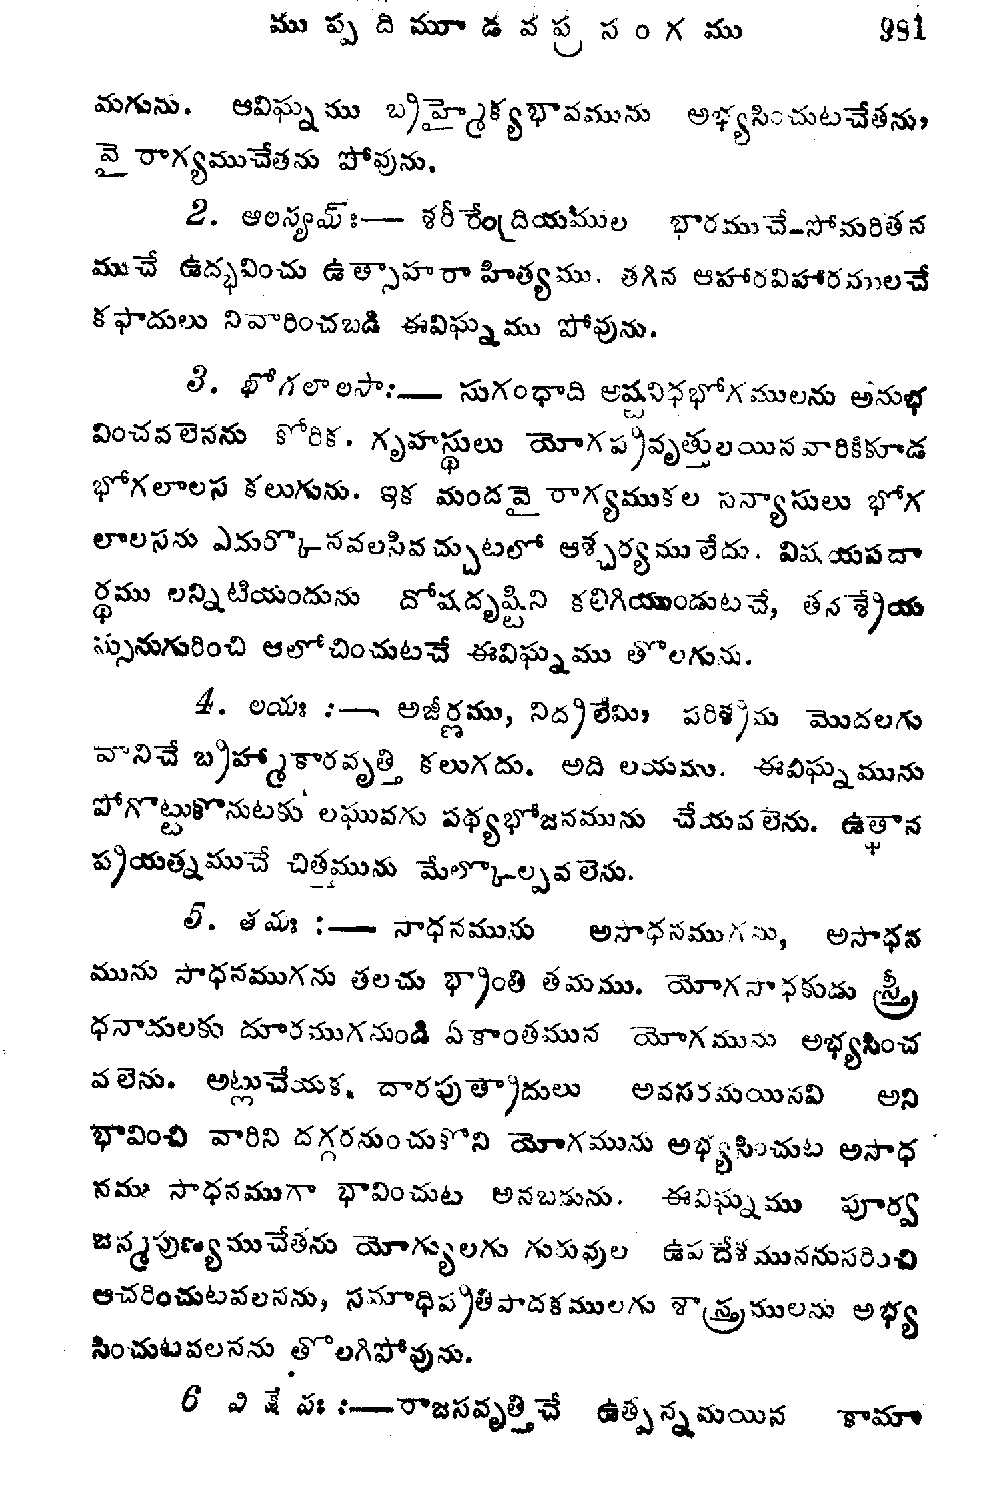 ముప్పదిమూడవప్రసంగము 981
మగును. ఆవిఘ్నము బ్రహ్మైక్యభావమును అభ్యసించుటచేతను,
వైరాగ్యముచేతను పోవును.
2. ఆలస్యమ్ః— శరీరేంద్రియముల భారముచే-సోమరితన
ముచే ఉద్భవించు ఉత్సాహరాహిత్యము. తగిన ఆహారవిహారములచే
కఫాదులు నివారించబడి ఈవిఘ్నము పోవును.
3. భోగలాలసా:— సుగంధాది అష్టవిధభోగములను అనుభ
వించవలెనను కోరిక. గృహస్థులు యోగప్రవృత్తులయినవారికికూడ
భోగలాలస కలుగును. ఇక మందవైరాగ్యముకల సన్యాసులు భోగ
లాలసను ఎదుర్కొనవలసివచ్చుటలో ఆశ్చర్యములేదు. విషయపదా
ర్థము లన్నిటియందును దోషదృష్టిని కలిగియుండుటచే, తనశ్రేయ
స్సునుగురించి ఆలోచించుటచే ఈవిఘ్నము తొలగును.
4. లయః :— అజీర్ణము, నిద్రలేమి, పరిశ్రమ మొదలగు
వానిచే బ్రహ్మాకారవృత్తి కలుగదు. అది లయము. ఈవిఘ్నమును
పోగొట్టుకొనుటకు లఘువగు పథ్యభోజనమును చేయవలెను. ఉత్థాన
ప్రయత్నముచే చిత్తమును మేల్కొల్పవలెను.
5. తమః :— సాధనమును అసాధనముగను, అసాధన
మును సాధనముగను తలచు భ్రాంతి తమము. యోగసాధకుడు స్త్రీ
ధనాదులకు దూరముగనుండి ఏకాంతమున యోగమును అభ్యసించ
వలెను. అట్లుచేయక, దారపుత్రాదులు అవసరమయినవి అని
భావించి వారిని దగ్గరనుంచుకొని యోగమును అభ్యసించుట అసాధ
నము సాధనముగా భావించుట అనబడును. ఈవిఘ్నము పూర్వ
జన్మపుణ్యముచేతను యోగ్యులగు గురువుల ఉపదేశముననుసరించి
ఆచరించుటవలనను, సమాధిప్రతిపాదకములగు శాస్త్రములను అభ్య
సించుటవలనను తొలగిపోవును.
6 విక్షేపః :—రాజసవృత్తిచే ఉత్పన్నమయిన కామా